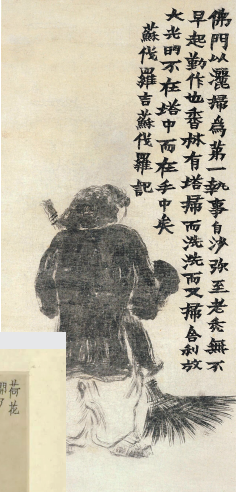 佛門以灑掃為第一執事自沙弥至老禿無不
早起勤作也香林有塔掃而洗洗而又掃舍利放
大光明不在塔中而在手中矣
蘇伐羅吉蘇伐羅記
荷花